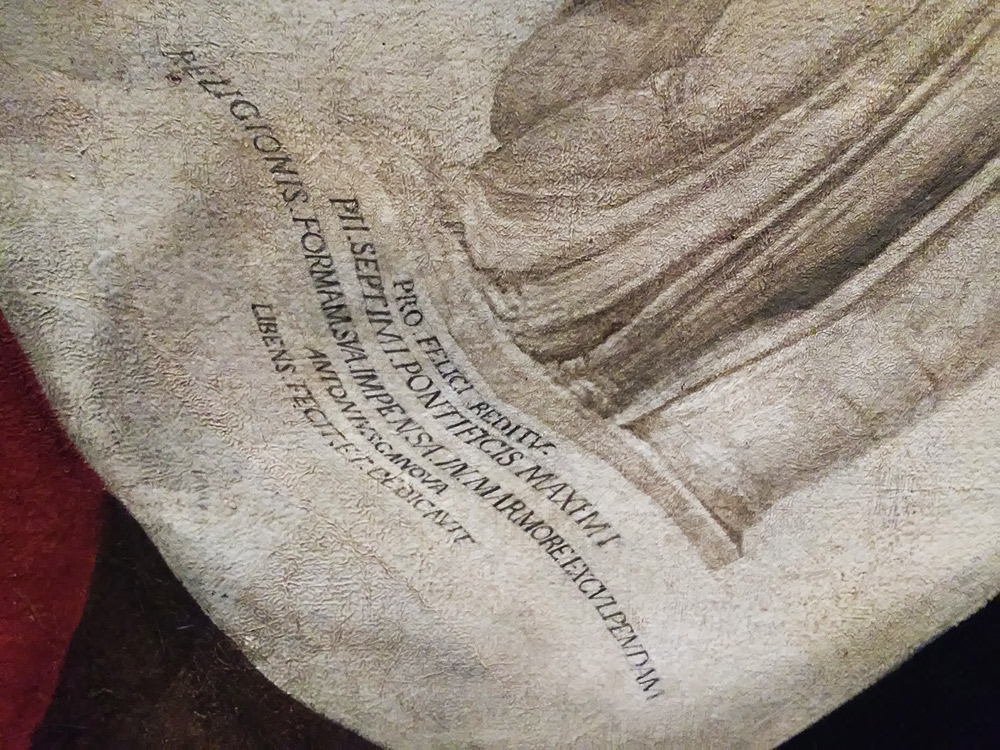 PRO FELICI REDITV·
PII·SEPTIMI·PONTIFICIS MAXIMI
RELIGIONIS·FORMAM·SVA·IMPENSA·IN·MARMORE·EXCVLPENDAM
ANTONIVS·CANOVA
LIBENS·FECIT·ET·DEDICAVIT